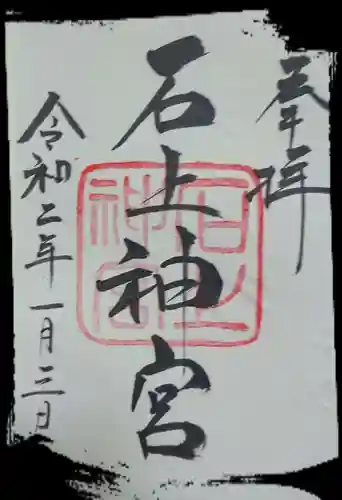 奉拝
石上神宮
石上神宮
令和二年一月三日